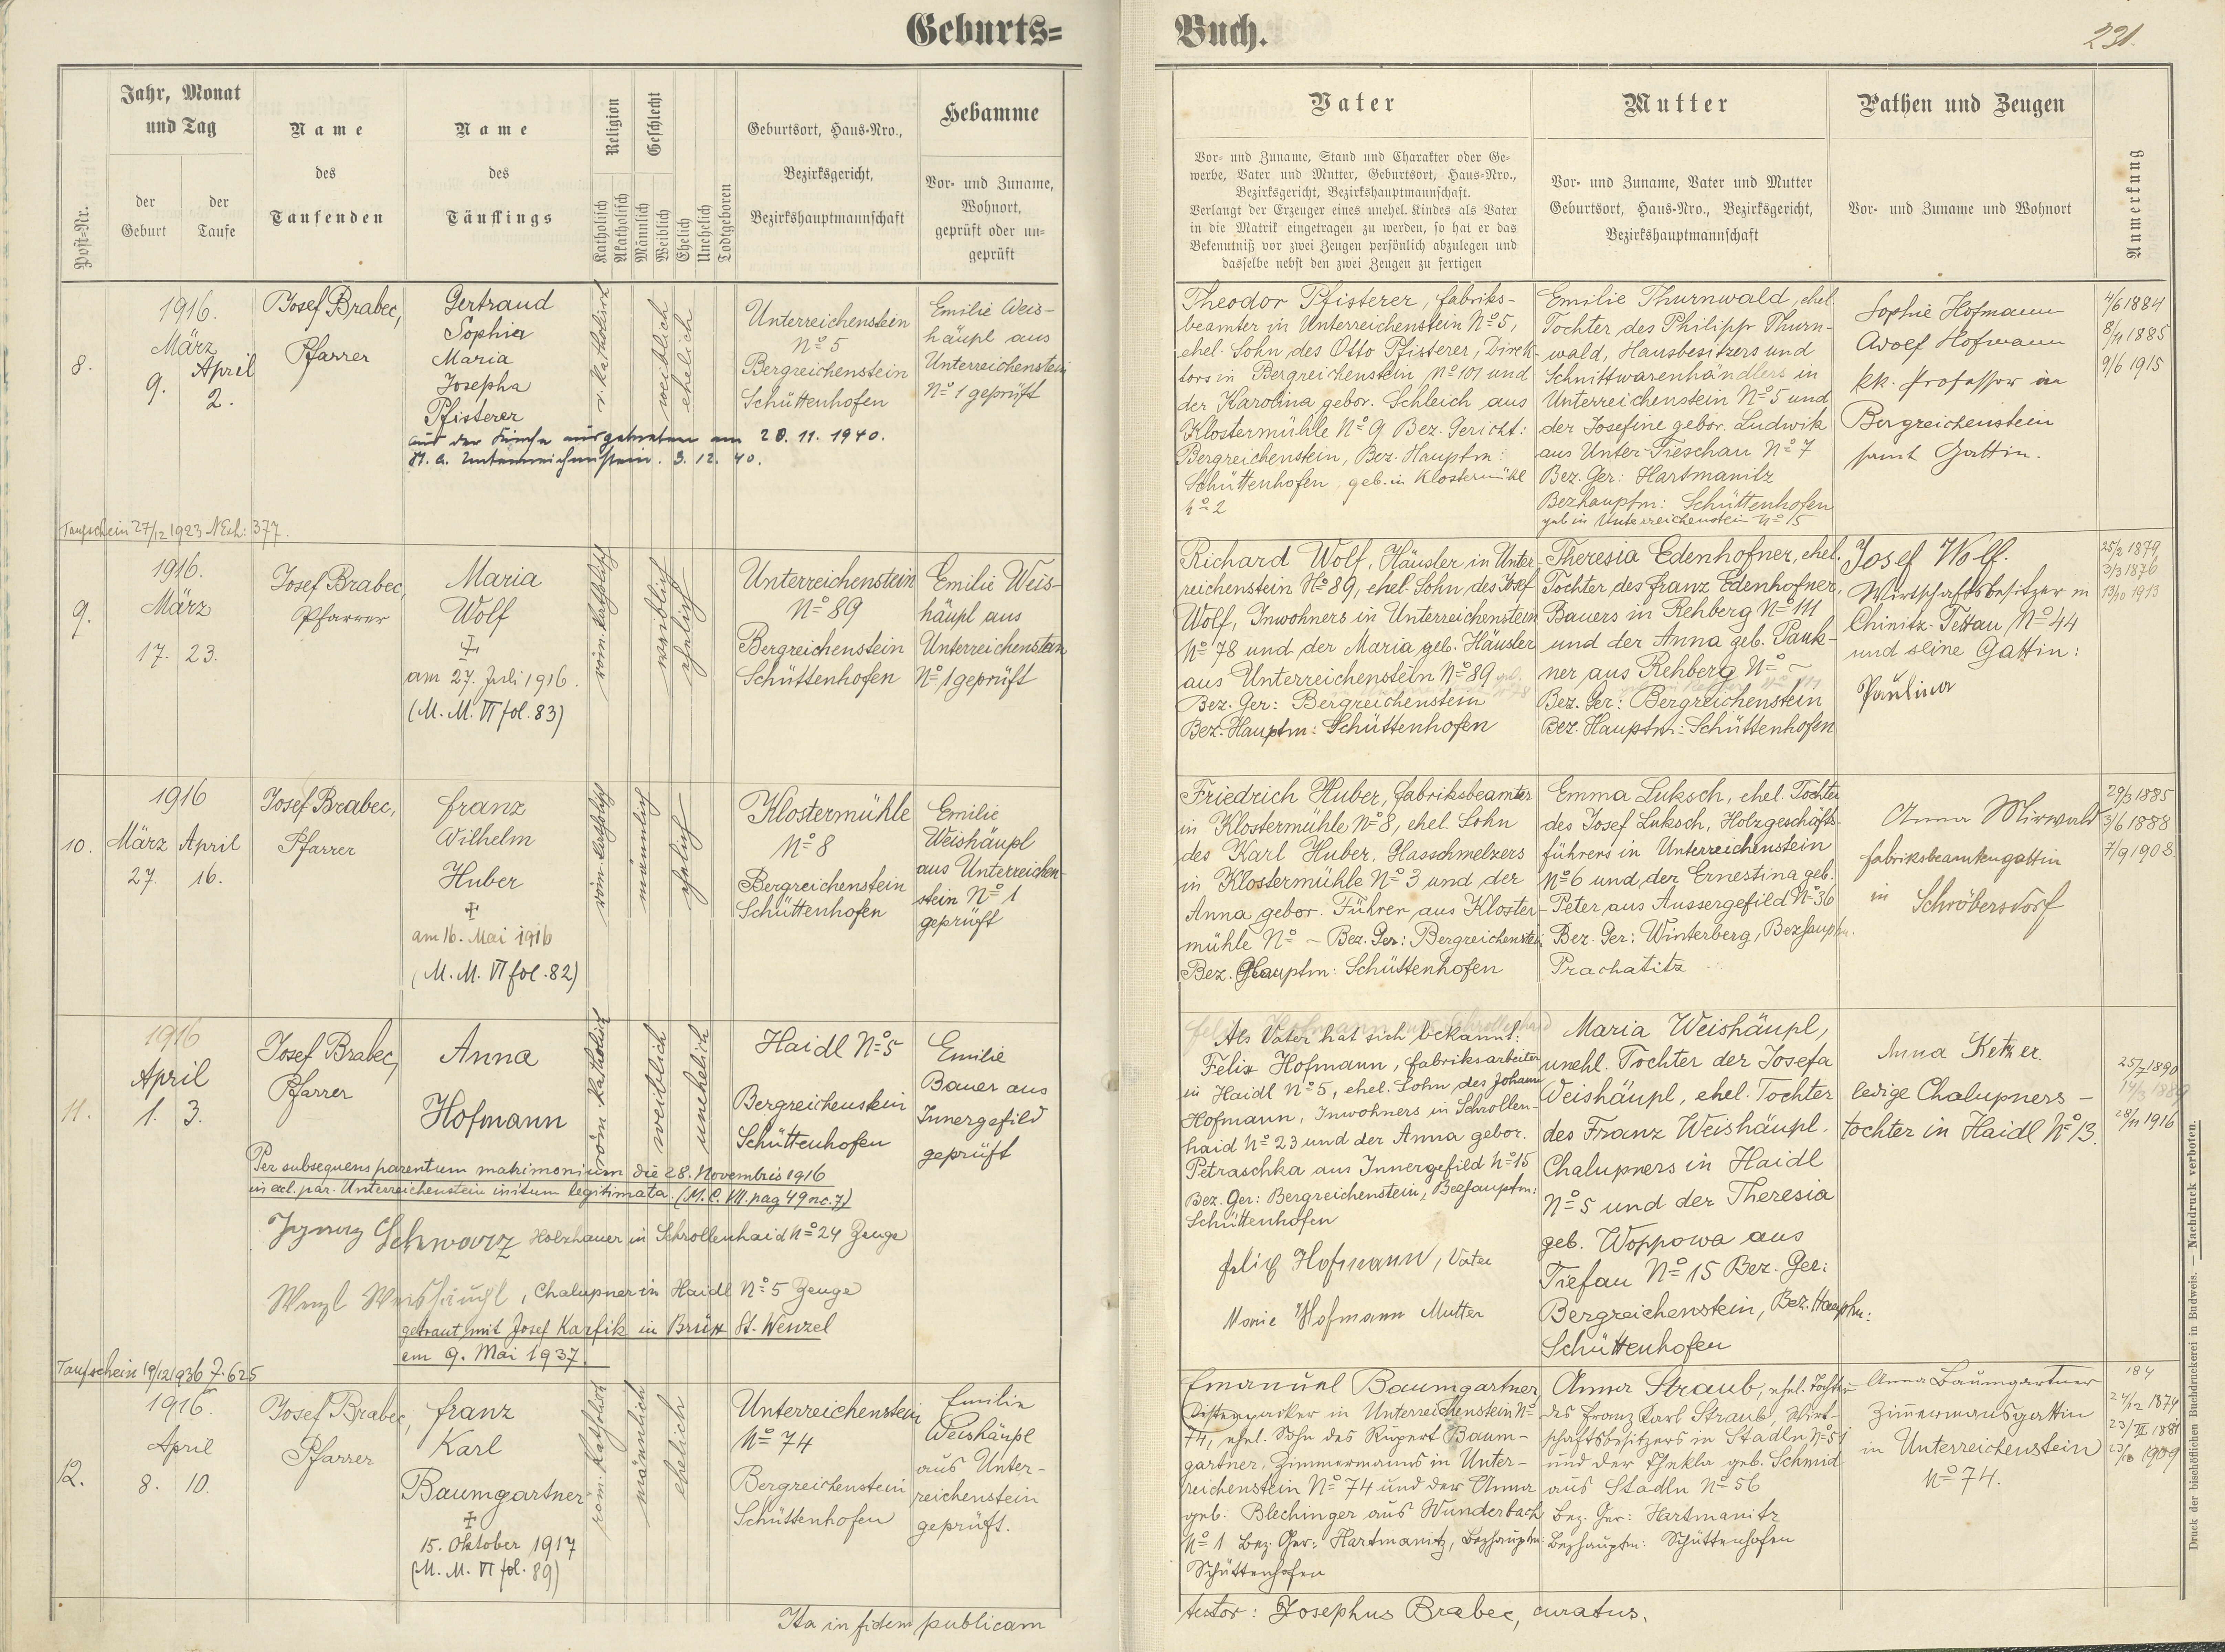 Geburts=
Buch.
231.
Post-Nr.
Jahr, Monat
und Tag
der
Geburt
der
Taufe
Name
des
Taufenden
Name
des
Täuflings
Religion
Katholisch
Akatholisch
Geschlecht
Männlich
Weiblich
Ehelich
Unehelich
Todtgeboren
Geburtsort, Haus-Nro.,
Bezirksgericht,
Bezirkshauptmannschaft
Hebamme
Vor- und Zuname,
Wohnort,
geprüft oder un-
geprüft
Vater
Vor- und Zuname, Stand und Charakter oder Ge-
werbe, Vater und Mutter, Geburtsort, Haus-Nro.,
Bezirksgericht, Bezirkshauptmannschaft.
Verlangt der Erzeuger eines unehel. Kindes als Vater
in die Matrik eingetragen zu werden, so hat er das
Bekenntniß vor zwei Zeugen persönlich abzulegen und
dasselbe nebst den zwei Zeugen zu fertigen
Mutter
Vor- und Zuname, Vater und Mutter
Geburtsort, Haus-Nro., Bezirksgericht,
Bezirkshauptmannschaft
Pathen und Zeugen
Vor- und Zuname und Wohnort
Anmerkung
8.
1916.
März
April
9.
2.
Josef Brabec,
Pfarrer
Gertraud
Sophia
Maria
Josepha
Pfisterer
aus der Kirche ausgetreten am 20. 11. 1940.
Unterreichenstein. 3. 12. 40.
r. katholisch
weiblich
ehelich
Unterreichenstein
No 5
Bergreichenstein
Schüttenhofen
Emilie Weis-
häupl aus
Unterreichenstein
No 1 geprüft
Theodor Pfisterer, Fabriks-
beamter in Unterreichenstein No 5,
ehel. Sohn des Otto Pfisterer, Direk-
tors in Bergreichenstein No 101 und
der Karolina gebor. Schleich aus
Klostermühle No 9 Bez. Gericht:
Bergreichenstein, Bez. Hauptm:
Schüttenhofen, geb. in Klostermühl
No 2
Emilie Thurnwald, ehel.
Tochter des Philipp Thurn-
wald, Hausbesitzers und
Schnittwarenhändlers in
Unterreichenstein No 5 und
der Josefine gebor. Ludwik
aus Unter-Tieschau No 7
Bez. Ger: Hartmanitz
Bezhauptm: Schüttenhofen
geb in Unterreichenstein No 15
Sophie Hofmann
Adolf Hofmann
kk. Professor in
Bergreichenstein
samt Gattin.
4/6 1884
8/11 1885
9/6 1915
Taufschein 27/12 1923 NExh: 377.
9.
1916.
März
17. 23.
Josef Brabec,
Pfarrer
Maria
Wolf
am 27. Juli 1916.
(M. M. VI fol. 83)
röm. katholisch
weiblich
ehelich
Unterreichenstein
No 89
Bergreichenstein
Schüttenhofen
Emilie Weis-
häupl aus
Unterreichenstein
No 1 geprüft
Richard Wolf, Häusler in Unter-
reichenstein No 89, ehel. Sohn des Josef
Wolf, Inwohners in Unterreichenstein
No 78 und der Maria geb. Häusler
aus Unterreichenstein No 89
Bez. Ger: Bergreichenstein
Bez. Hauptm: Schüttenhofen
Theresia Edenhofner, ehel.
Tochter des Franz Edenhofner,
Bauers in Rehberg No 111
und der Anna geb. Pank-
ner aus Rehberg No –
Bez. Ger: Bergreichenstein
Bez. Hauptm: Schüttenhofen
Josef Wolf.
Wirtschaftsbesitzer in
Chinitz-Tettau No 44
und seine Gattin:
Paulina
25/2 1879,
3/3 1876
13/10 1913
10.
1916
März April
27. 16.
Josef Brabec,
Pfarrer
Franz
Wilhelm
Huber
am 16. Mai 1916
(M. M. VI fol. 82)
röm. katholisch
männlich
ehelich
Klostermühle
No 8
Bergreichenstein
Schüttenhofen
Emilie
Weishäupl
aus Unterreichen-
stein No 1
geprüft
Friedrich Huber, Fabriksbeamter
in Klostermühle No 8, ehel. Sohn
des Karl Huber, Glasschmelzers
in Klostermühle No 3 und der
Anna gebor. Führer aus Kloster-
mühle No – Bez. Ger: Bergreichenstein
Bez. Hauptm: Schüttenhofen
Emma Luksch, ehel. Tochter
des Josef Luksch, Holzgeschäfts-
führers in Unterreichenstein
No 6 und der Ernestina geb.
Peter aus Aussergefild No 36
Bez. Ger: Winterberg, Bezhauptm.
Prachatitz
Anna Mirwald
Fabriksbeamtengattin
in Schröbersdorf
29/3 1885
3/6 1888
7/9 1908.
11.
1916
April
1. 3.
Josef Brabec,
Pfarrer
Anna
Hofmann
röm. katholisch
weiblich
unehelich
Haidl No 5
Bergreichenstein
Schüttenhofen
Emilie
Bauer aus
Innergefild
geprüft
Per subsequens parentum matrimonium die 28. Novembris 1916
in eccl. par. Unterreichenstein initum legitimata. (M. C. VII. pag 49 no. 7)
Ignaz Schwarz Holzhauer in Schrollenhaid No 24 Zeuge
Wenzl Weishäupl, Chalupner in Haidl No 5 Zeuge
getraut mit Josef Karfik in Brüx St. Wenzel
am 9. Mai 1937.
Als Vater hat sich bekannt:
Felix Hofmann, Fabriksarbeiter
in Haidl No 5, ehel. Sohn des Johann
Hofmann, Inwohners in Schrollen-
haid No 23 und der Anna gebor.
Petraschka aus Innergefild No 15
Bez. Ger: Bergreichenstein, Bezhauptm:
Schüttenhofen
Felix Hofmann, Vater
Marie Hofmann Mutter
Maria Weishäupl,
unehl. Tochter der Josefa
Weishäupl, ehel. Tochter
des Franz Weishäupl.
Chalupners in Haidl
No 5 und der Theresia
geb. Woppowa aus
Tiefau No 15 Bez. Ger:
Bergreichenstein, Bez. Hauptm:
Schüttenhofen
Anna Ketzer.
ledige Chalupners-
tochter in Haidl No 13.
25/7 1890
14/3 1889
28/11 1916
Taufschein 19/12 1936 Z. 625
12.
1916.
April
8. 10.
Josef Brabec,
Pfarrer
Franz
Karl
Baumgartner
15. Oktober 1917
(M. M. VI fol. 89)
röm. katholisch
männlich
ehelich
Unterreichenstein
No 74
Bergreichenstein
Schüttenhofen
Emilie
Weishäupl
aus Unter-
reichenstein
geprüft.
Emanuel Baumgartner
in Unterreichenstein No
74, ehel. Sohn des Rupert Baum-
gartner, Zimmermanns in Unter-
reichenstein No 74 und der Anna
geb. Blechinger aus Wunderbach
No 1 Bez. Ger: Hartmanitz, Bezhauptm:
Schüttenhofen
Anna Straub, ehel. Tochter
des Franz Karl Straub, Wirt-
schaftsbesitzers in Stadln No 51
und der Thekla geb. Schmid
aus Stadln No 56
Bez. Ger: Hartmanitz
Bezhauptm: Schüttenhofen
Anna Baumgartner
Zimmermannsgattin
in Unterreichenstein
No 74.
184
24/12 1874
23/III 1881
23/10 1909
Ita in fidem publicam
testor: Josephus Brabec, curatus.
Druck der bischöflichen Buchdruckerei in Budweis. — Nachdruck verboten.